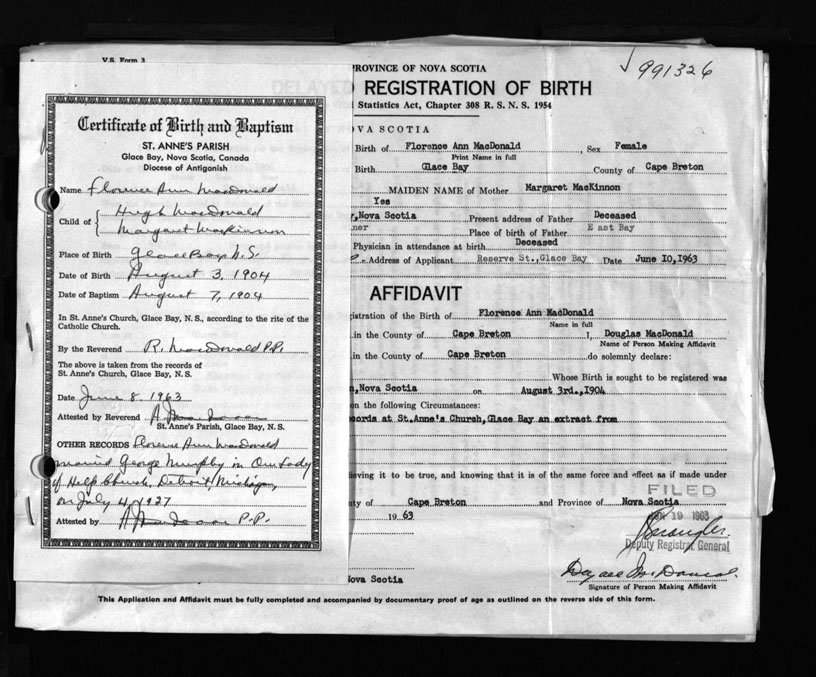 V.S. Form 3
Certificate of Birth and Baptism
ST. ANNE'S PARISH
Glace Bay, Nova Scotia, Canada
Diocese of Antigonish
Name Florence Ann MacDonald
Child of { Hugh MacDonald
Margaret MacKinnon
Place of Birth Glace Bay N.S.
Date of Birth August 3, 1904
Date of Baptism August 7, 1904
In St. Anne's Church, Glace Bay, N. S., according to the rite of the
Catholic Church.
By the Reverend R. MacDonald P.P.
The above is taken from the records of
St. Anne's Church, Glace Bay, N. S.
Date June 8, 1963
Attested by Reverend
St. Anne's Parish, Glace Bay, N. S.
OTHER RECORDS Florence Ann MacDonald
married George Murphy in Our Lady
of Help Church, Detroit, Michigan,
on July 4, 1927
Attested by P.P.
991326
PROVINCE OF NOVA SCOTIA
DELAYED REGISTRATION OF BIRTH
Statistics Act, Chapter 308 R. S. N. S. 1954
NOVA SCOTIA
Birth of Florence Ann MacDonald , Sex Female
Print Name in full
Birth Glace Bay County of Cape Breton
MAIDEN NAME of Mother Margaret MacKinnon
Yes
,Nova Scotia Present address of Father Deceased
ner Place of birth of Father East Bay
Physician in attendance at birth Deceased
Address of Applicant Reserve St.,Glace Bay Date June 10,1963
AFFIDAVIT
istration of the Birth of Florence Ann MacDonald
Name in full
in the County of Cape Breton I, Douglas MacDonald
Name of Person Making Affidavit
in the County of Cape Breton do solemnly declare:
Whose Birth is sought to be registered was
,Nova Scotia on August 3rd.,1904
on the following Circumstances:
cords at St.Anne's Church,Glace Bay an extract from
ieving it to be true, and knowing that it is of the same force and effect as if made under
ty of Cape Breton and Province of Nova Scotia
FILED
1963 19 1963
Deputy Registrar General
Nova Scotia
Signature of Person Making Affidavit
This Application and Affidavit must be fully completed and accompanied by documentary proof of age as outlined on the reverse side of this form.